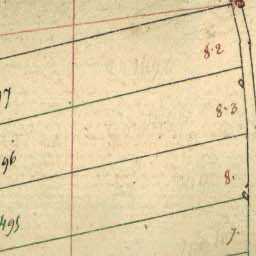 8.2
97
8.3
96
8.
495
7.